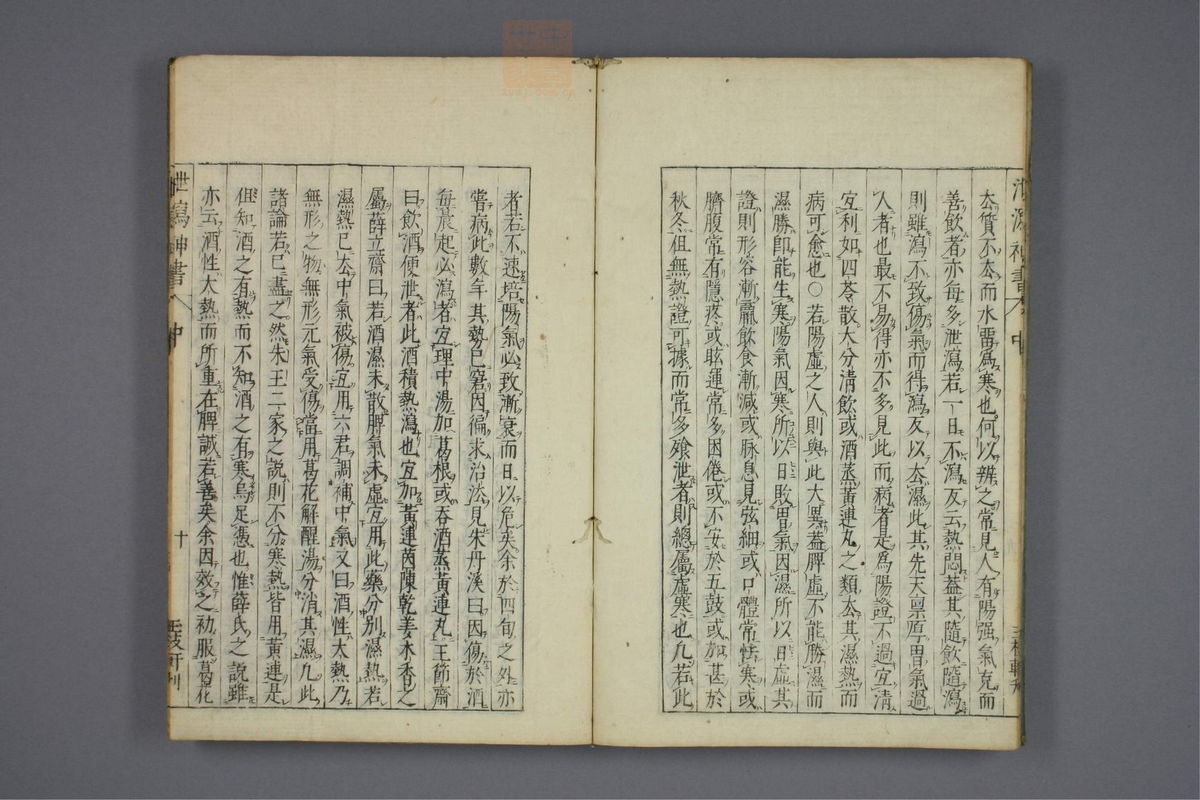 去質不去而水畱爲寒也何以辨之常見人有陽强氣充而
善飲者亦每多泄瀉若一日不瀉反云熱悶蓋其隨飲隨瀉
則雖瀉不致傷氣而得瀉反以去濕此其先天禀厚胃氣過
人者也最不易得亦不多見此而病者是爲陽證不過宜清
宜利如四苓散大分清飲或酒蒸黃連丸之類去其濕熱而
病可愈也○若陽虛之人則與此大異蓋脾虛不能勝濕而
濕勝卽能生寒陽氣因寒所以日敗胃氣因濕所以日虛其
證則形容漸羸飲食漸減或脉息見弦細或口體常怯寒或
臍腹常有隱疼或眩運常多困倦或不安於五鼓或加甚於
秋冬但無熱證可據而常多飱泄者則總屬虛寒也凡若此
者若不速培陽氣必致漸衰而日以危矣余於四旬之外亦
嘗病此數年其勢已窘因徧求治法見朱丹溪曰因傷於酒
每晨起必瀉者宜理中湯加葛根或吞酒蒸黃連丸王節齋
曰飲酒便泄者此酒積熱瀉也宜加黃連茵陳乾姜木香之
屬薛立齋曰若酒濕未散脾氣未虛宜用此藥分別濕熱若
濕熱已去中氣被傷宜用六君調補中氣又曰酒性大熱乃
無形之物無形元氣受傷當用葛花解酲湯分消其濕凡此
諸論若已盡之然朱王二家之說則不分寒熱皆用黃連是
但知酒之有熱而不知酒之有寒烏足憑也惟薛氏之說雖
亦云酒性大熱而所重在脾誠若善矣余因效之初服葛花
泄瀉神書 中 十